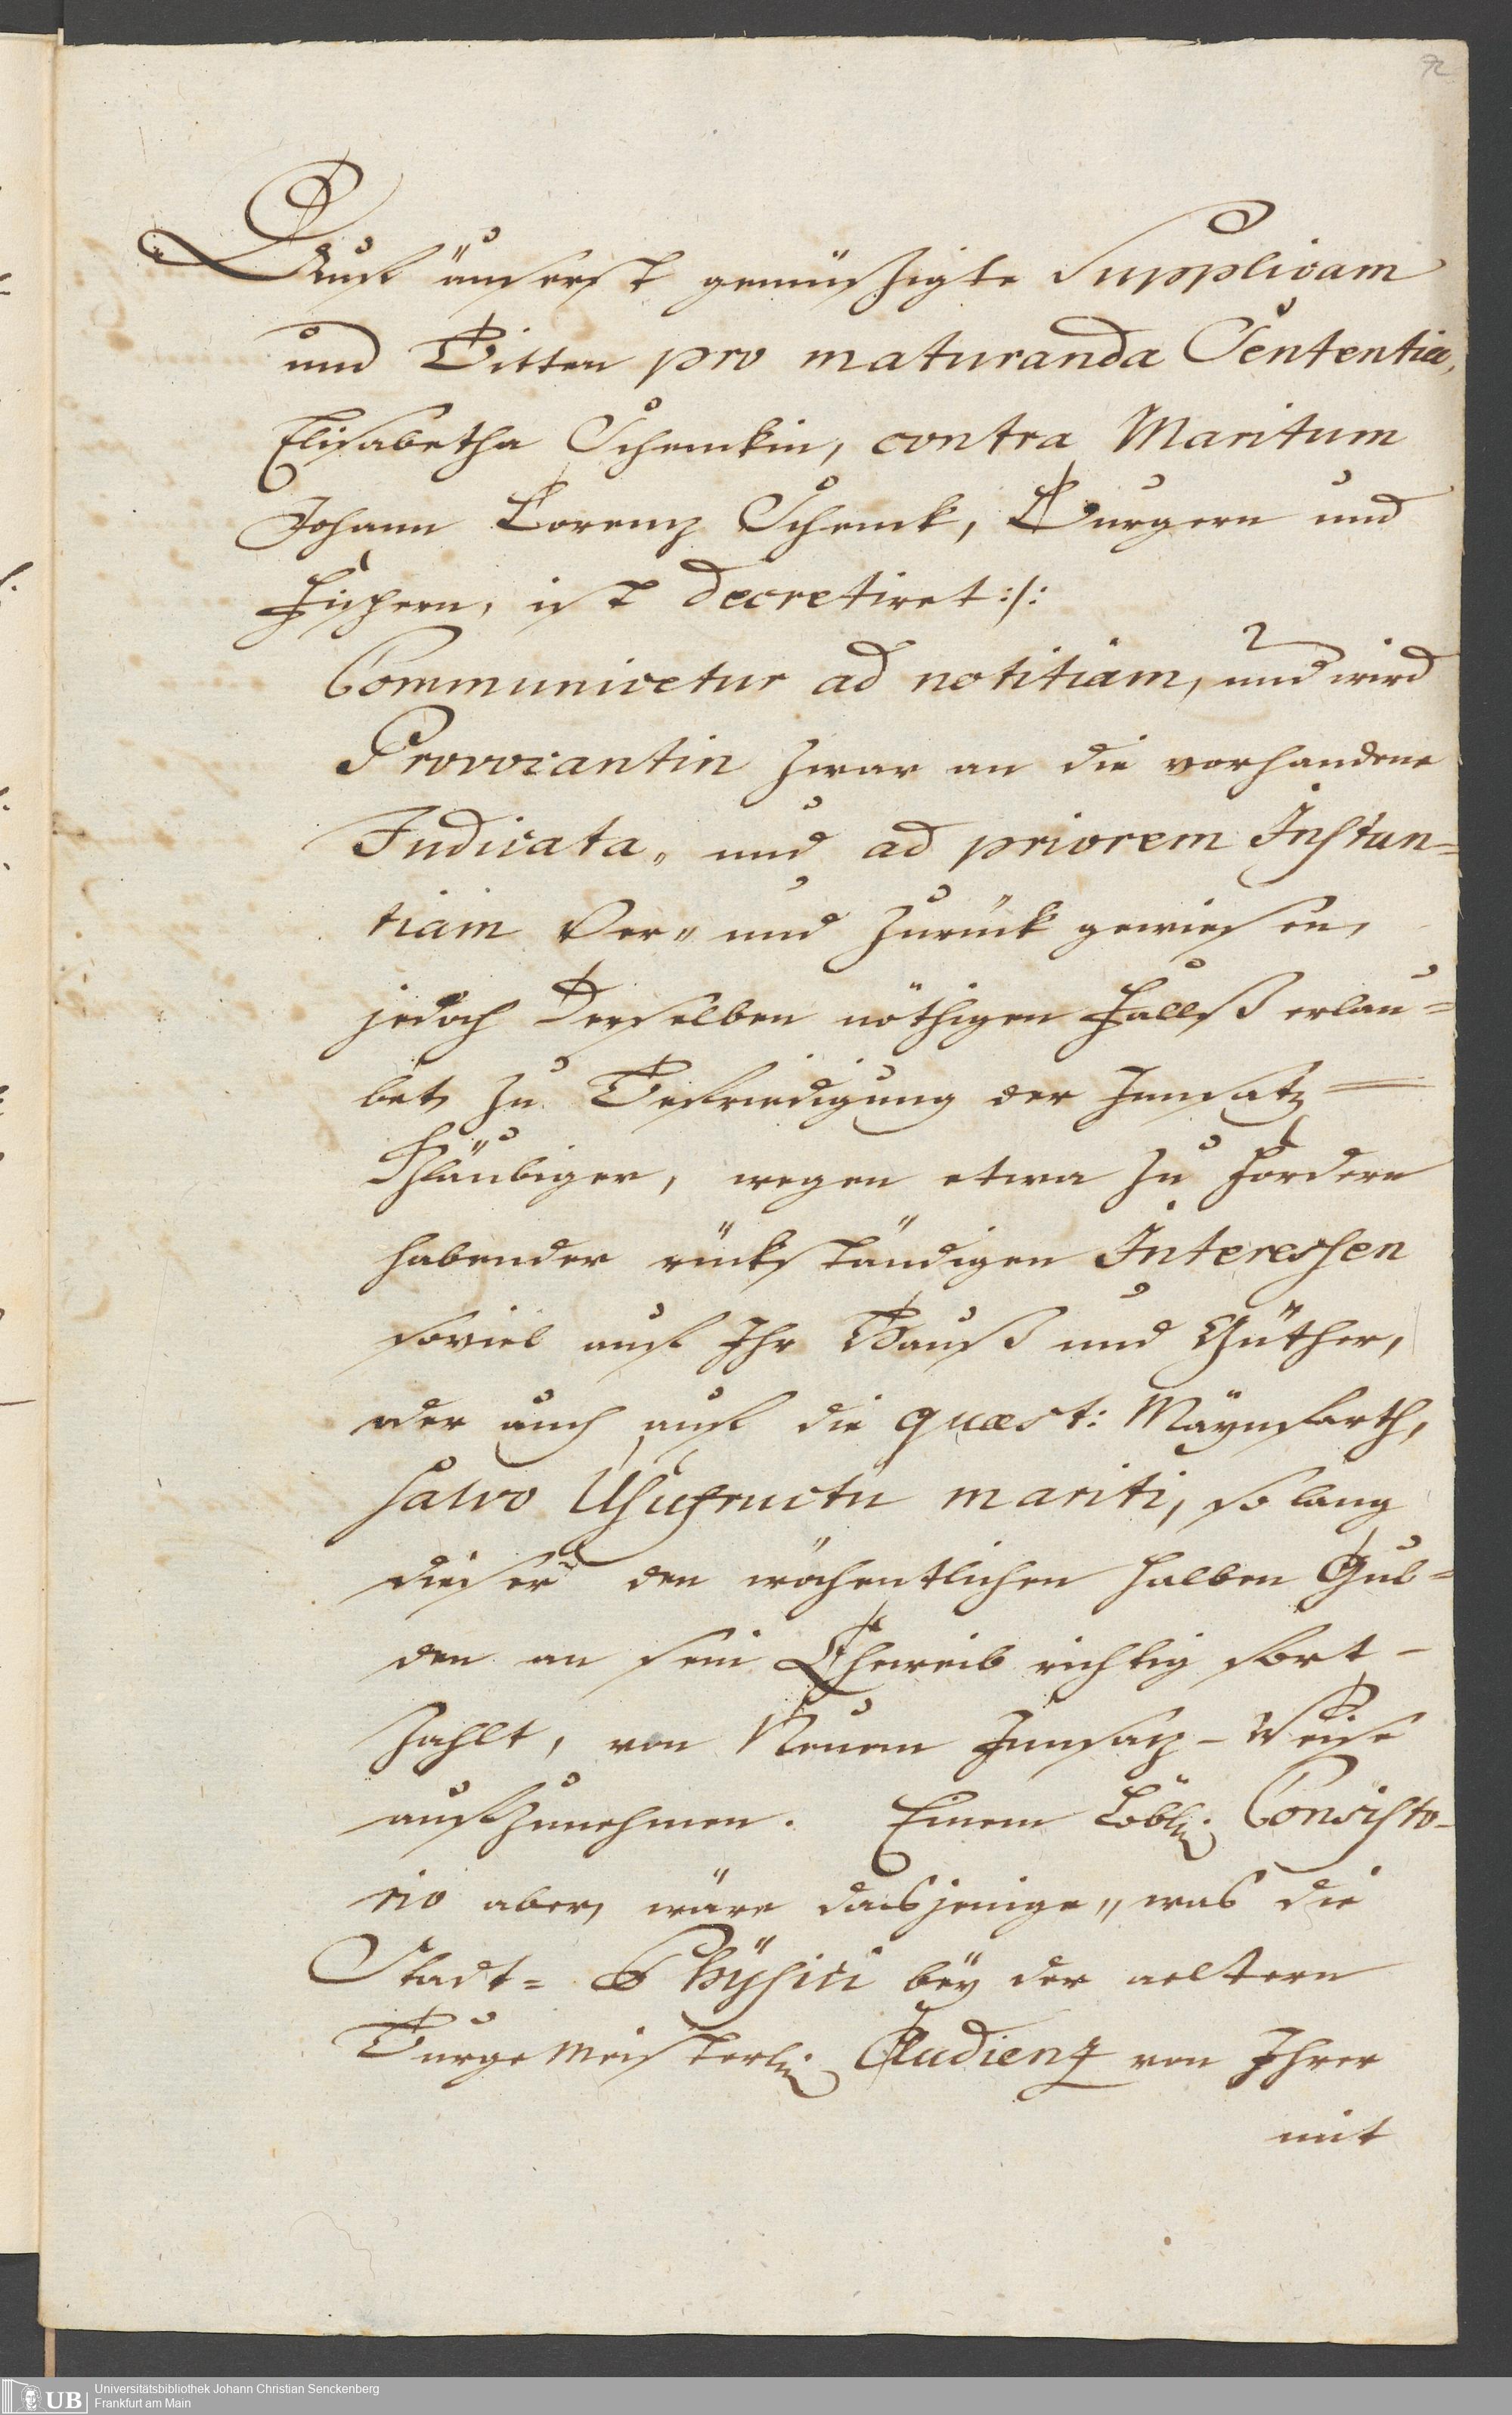 72
Auf äuserst gemüsigte Supplicam
und Bitten pro maturanda Sententia,
Elisabetha Schenckin, contra Maritum
Johann Lorenz Schenck, Burgern und
Fischern, ist decretiret :/:
Communicetur ad notitiam, und wird
Provocantin zwar an die vorhandene
Judicata, und ad priorem Instan=
tiam Ver- und zurück gewiesen,
jedoch Derselben nöthigen Fallß erlau=
bet, zu Befriedigung der Innsatz=
Gläubiger, wegen etwa zu fordern
habender rückständigen Interessen
soviel auf Ihr Hauß und Güther,
oder auch auf die quæst: Maynfarth,
salvo Usufructu mariti, so lang
dieser den wöchentlichen halben Gul=
den an sein Eheweib richtig fort-
zahlt, von Neuem Innsaz-Weise
aufzunehmen. Einem Löbl: Consisto-
rio aber, wäre dasjenige, was die
Stadt= Physici bey der aeltern
Burgemeisterl: Audienz von Ihrer
mit
UB
Universitätsbibliothek Johann Christian Senckenberg
Frankfurt am Main